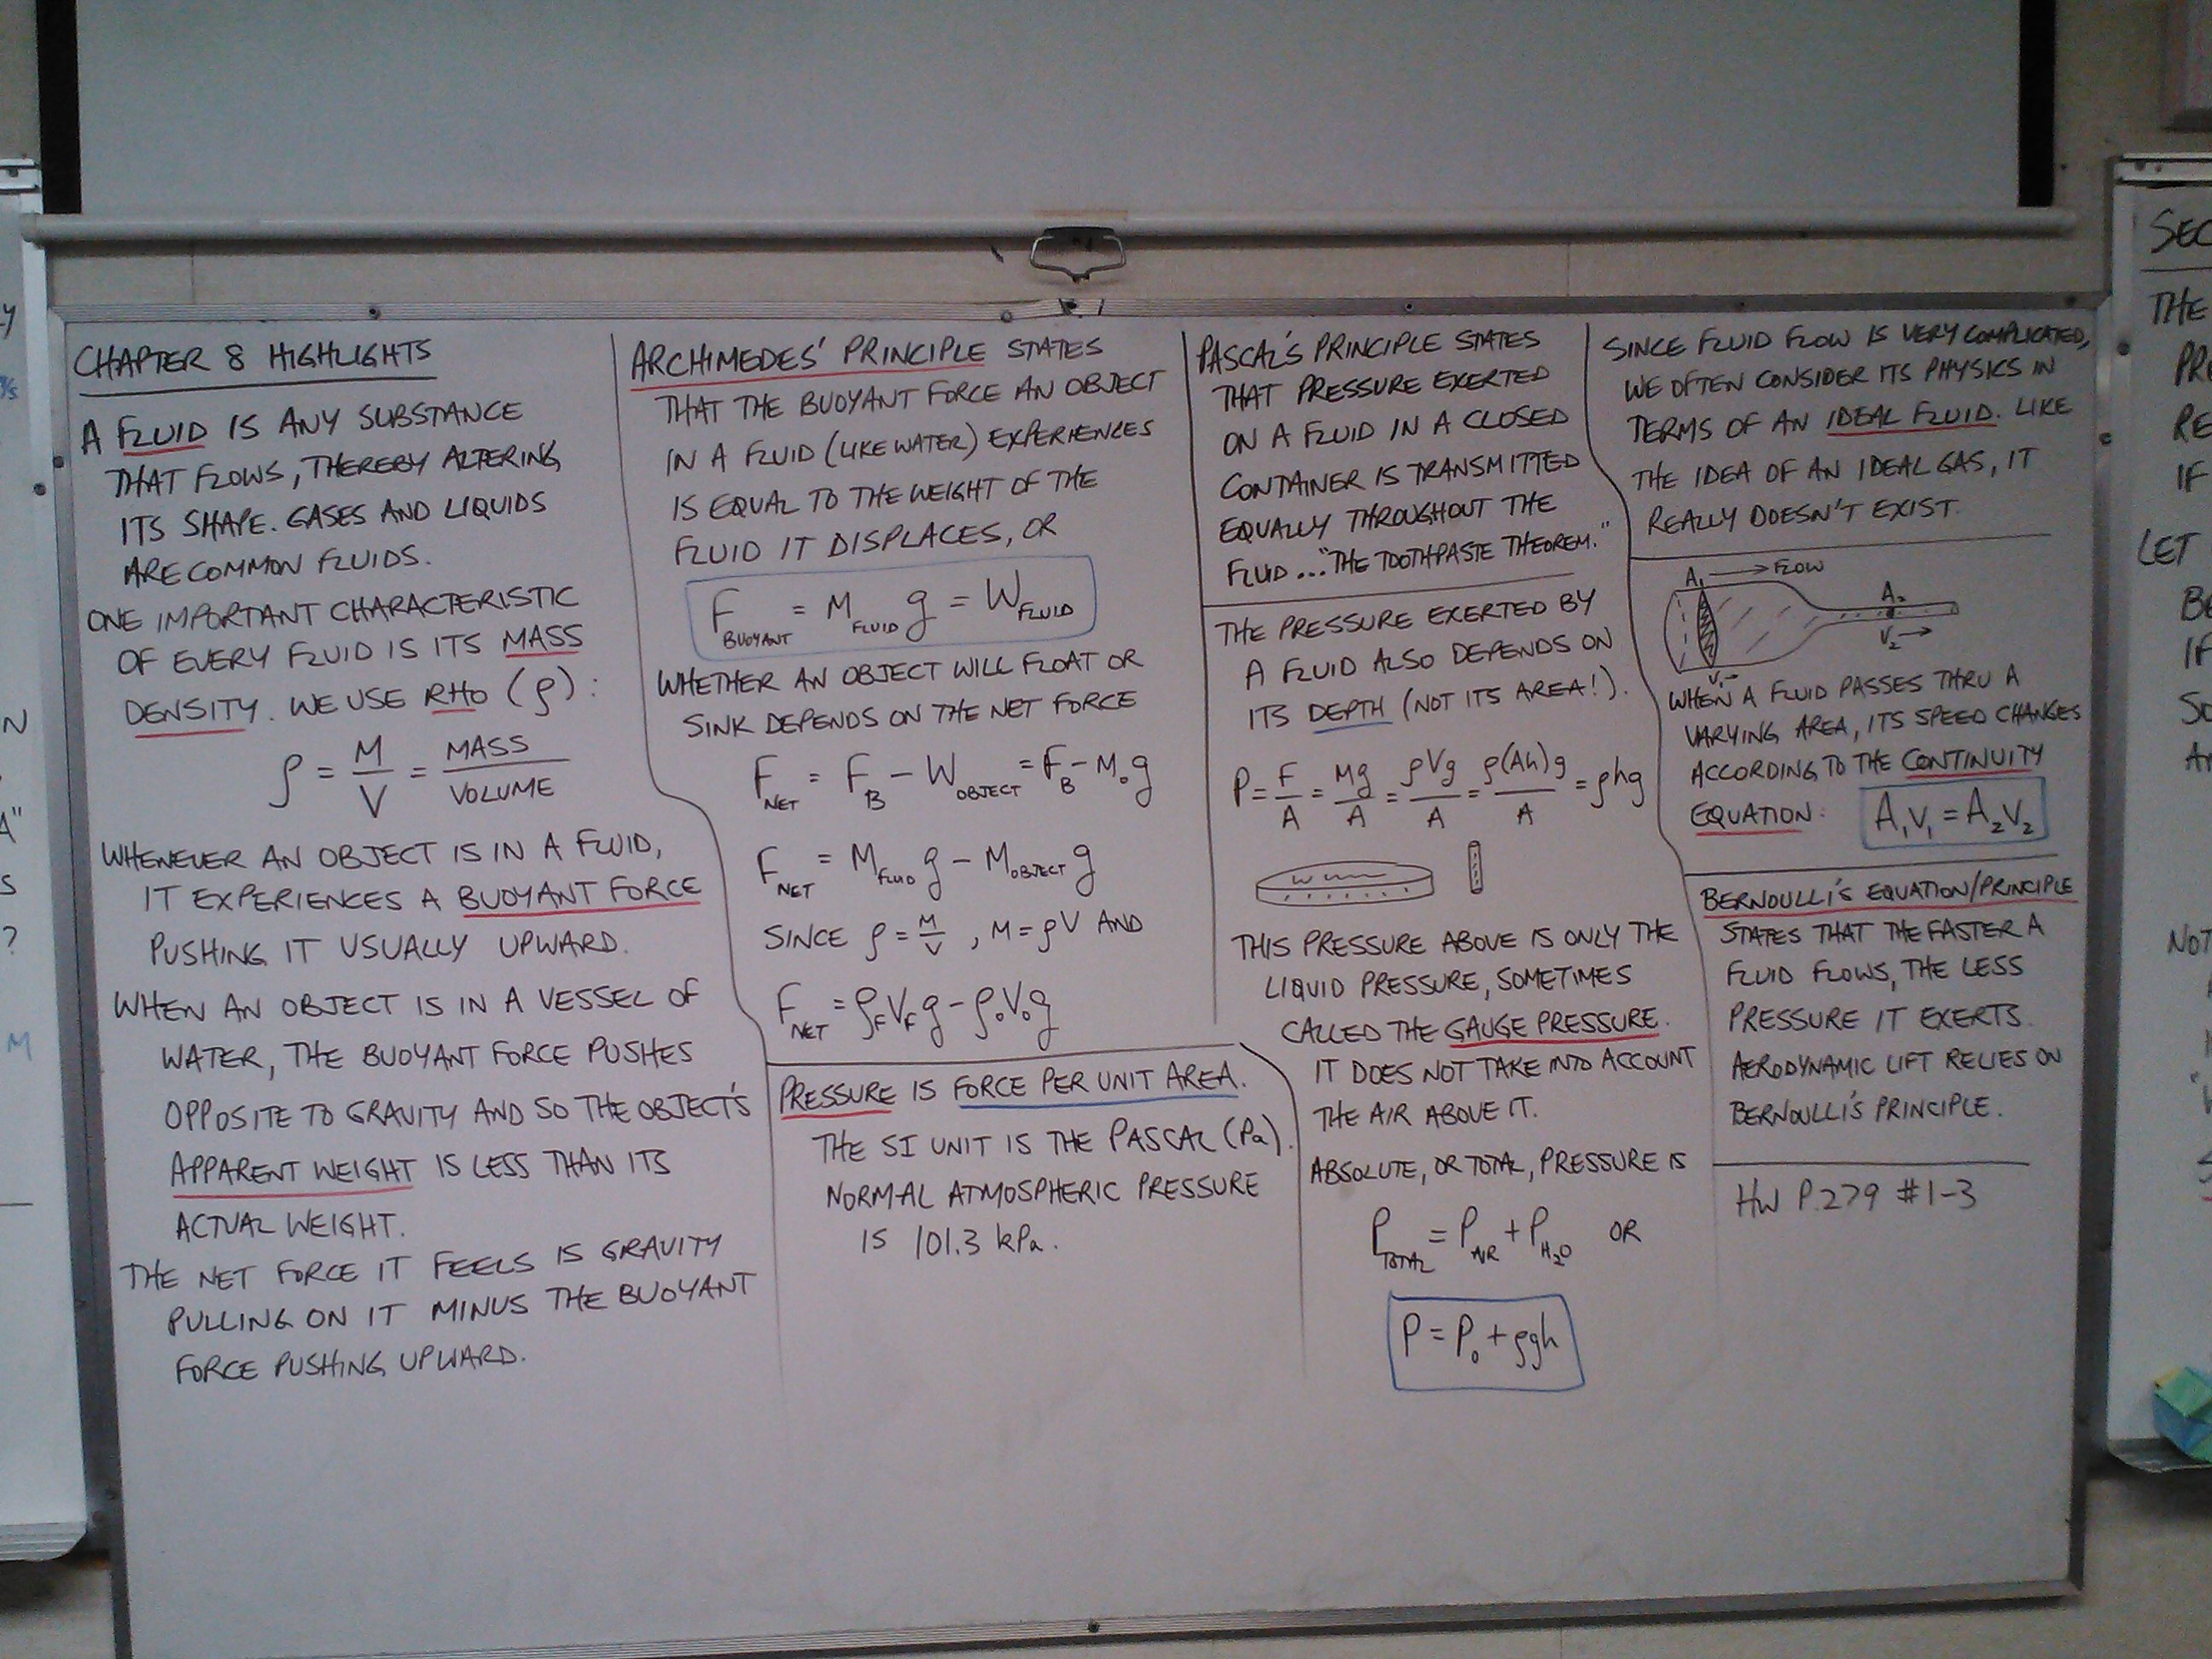 CHAPTER 8 HIGHLIGHTS
A FLUID IS ANY SUBSTANCE
THAT FLOWS, THEREBY ALTERING
ITS SHAPE. GASES AND LIQUIDS
ARE COMMON FLUIDS.
ONE IMPORTANT CHARACTERISTIC
OF EVERY FLUID IS ITS MASS
DENSITY. WE USE RHO (ρ):
ρ = M/V = MASS/VOLUME
WHENEVER AN OBJECT IS IN A FLUID,
IT EXPERIENCES A BUOYANT FORCE
PUSHING IT USUALLY UPWARD.
WHEN AN OBJECT IS IN A VESSEL OF
WATER, THE BUOYANT FORCE PUSHES
OPPOSITE TO GRAVITY AND SO THE OBJECT'S
APPARENT WEIGHT IS LESS THAN ITS
ACTUAL WEIGHT.
THE NET FORCE IT FEELS IS GRAVITY
PULLING ON IT MINUS THE BUOYANT
FORCE PUSHING UPWARD.
ARCHIMEDES' PRINCIPLE STATES
THAT THE BUOYANT FORCE AN OBJECT
IN A FLUID (LIKE WATER) EXPERIENCES
IS EQUAL TO THE WEIGHT OF THE
FLUID IT DISPLACES, OR
F_BUOYANT = M_FLUID g = W_FLUID
WHETHER AN OBJECT WILL FLOAT OR
SINK DEPENDS ON THE NET FORCE
F_NET = F_B - W_OBJECT = F_B - M_o g
F_NET = M_FLUID g - M_OBJECT g
SINCE ρ = M/V, M = ρV AND
F_NET = ρ_F V_F g - ρ_o V_o g
PRESSURE IS FORCE PER UNIT AREA.
THE SI UNIT IS THE PASCAL (Pa).
NORMAL ATMOSPHERIC PRESSURE
IS 101.3 kPa.
PASCAL'S PRINCIPLE STATES
THAT PRESSURE EXERTED
ON A FLUID IN A CLOSED
CONTAINER IS TRANSMITTED
EQUALLY THROUGHOUT THE
FLUID..."THE TOOTHPASTE THEOREM."
THE PRESSURE EXERTED BY
A FLUID ALSO DEPENDS ON
ITS DEPTH (NOT ITS AREA!).
P = F/A = Mg/A = ρVg/A = ρ(Ah)g/A = ρhg
THIS PRESSURE ABOVE IS ONLY THE
LIQUID PRESSURE, SOMETIMES
CALLED THE GAUGE PRESSURE.
IT DOES NOT TAKE INTO ACCOUNT
THE AIR ABOVE IT.
ABSOLUTE, OR TOTAL, PRESSURE IS
P_TOTAL = P_AIR + P_H₂O OR
P = P₀ + ρgh
SINCE FLUID FLOW IS VERY COMPLICATED,
WE OFTEN CONSIDER ITS PHYSICS IN
TERMS OF AN IDEAL FLUID. LIKE
THE IDEA OF AN IDEAL GAS, IT
REALLY DOESN'T EXIST.
A₁ → FLOW
A₂
V₂ →
V₁ →
WHEN A FLUID PASSES THRU A
VARYING AREA, ITS SPEED CHANGES
ACCORDING TO THE CONTINUITY
EQUATION: A₁V₁ = A₂V₂
BERNOULLI'S EQUATION/PRINCIPLE
STATES THAT THE FASTER A
FLUID FLOWS, THE LESS
PRESSURE IT EXERTS.
AERODYNAMIC LIFT RELIES ON
BERNOULLI'S PRINCIPLE.
HW P.279 #1-3
SEC
THE
PRE
RE
IF
LET
BE
IF
SO
NOT